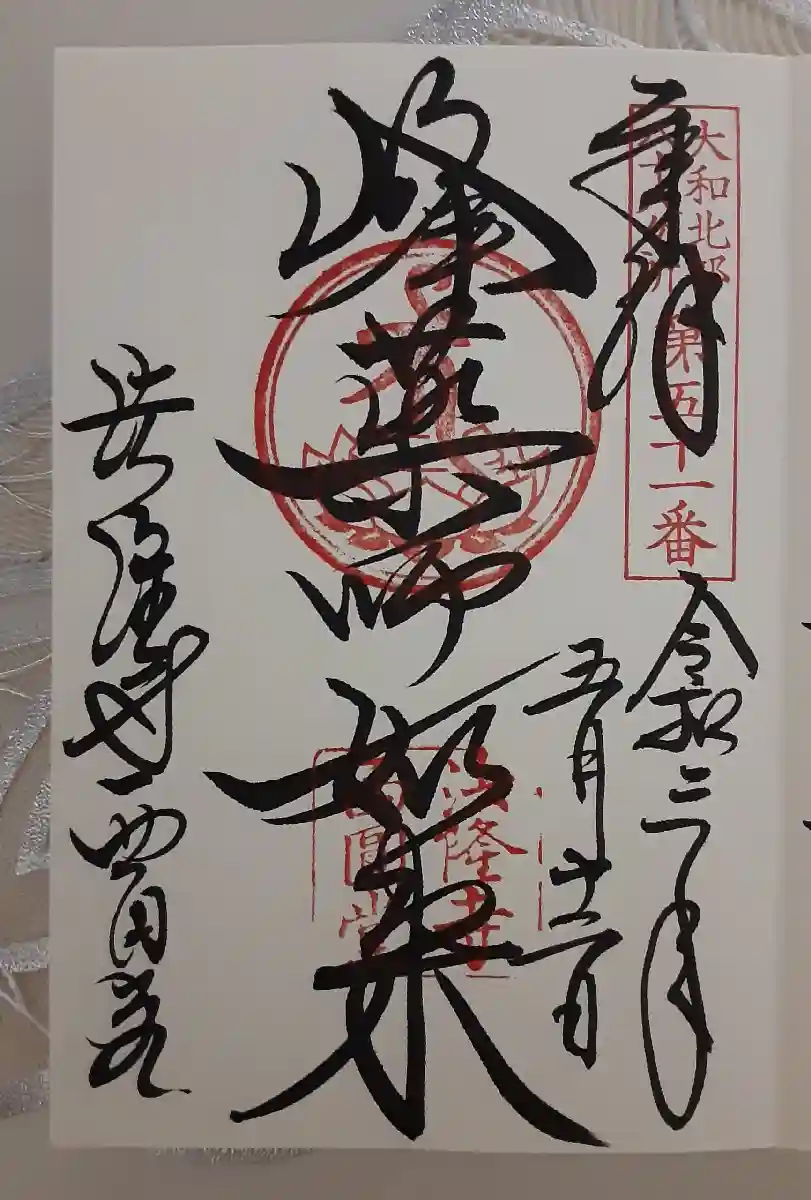 奉拝
大和北部
八十八ヶ所 第五十一番
令和三年
五月十二日
峰薬師如来
法隆寺
西圓堂
法隆寺西円堂